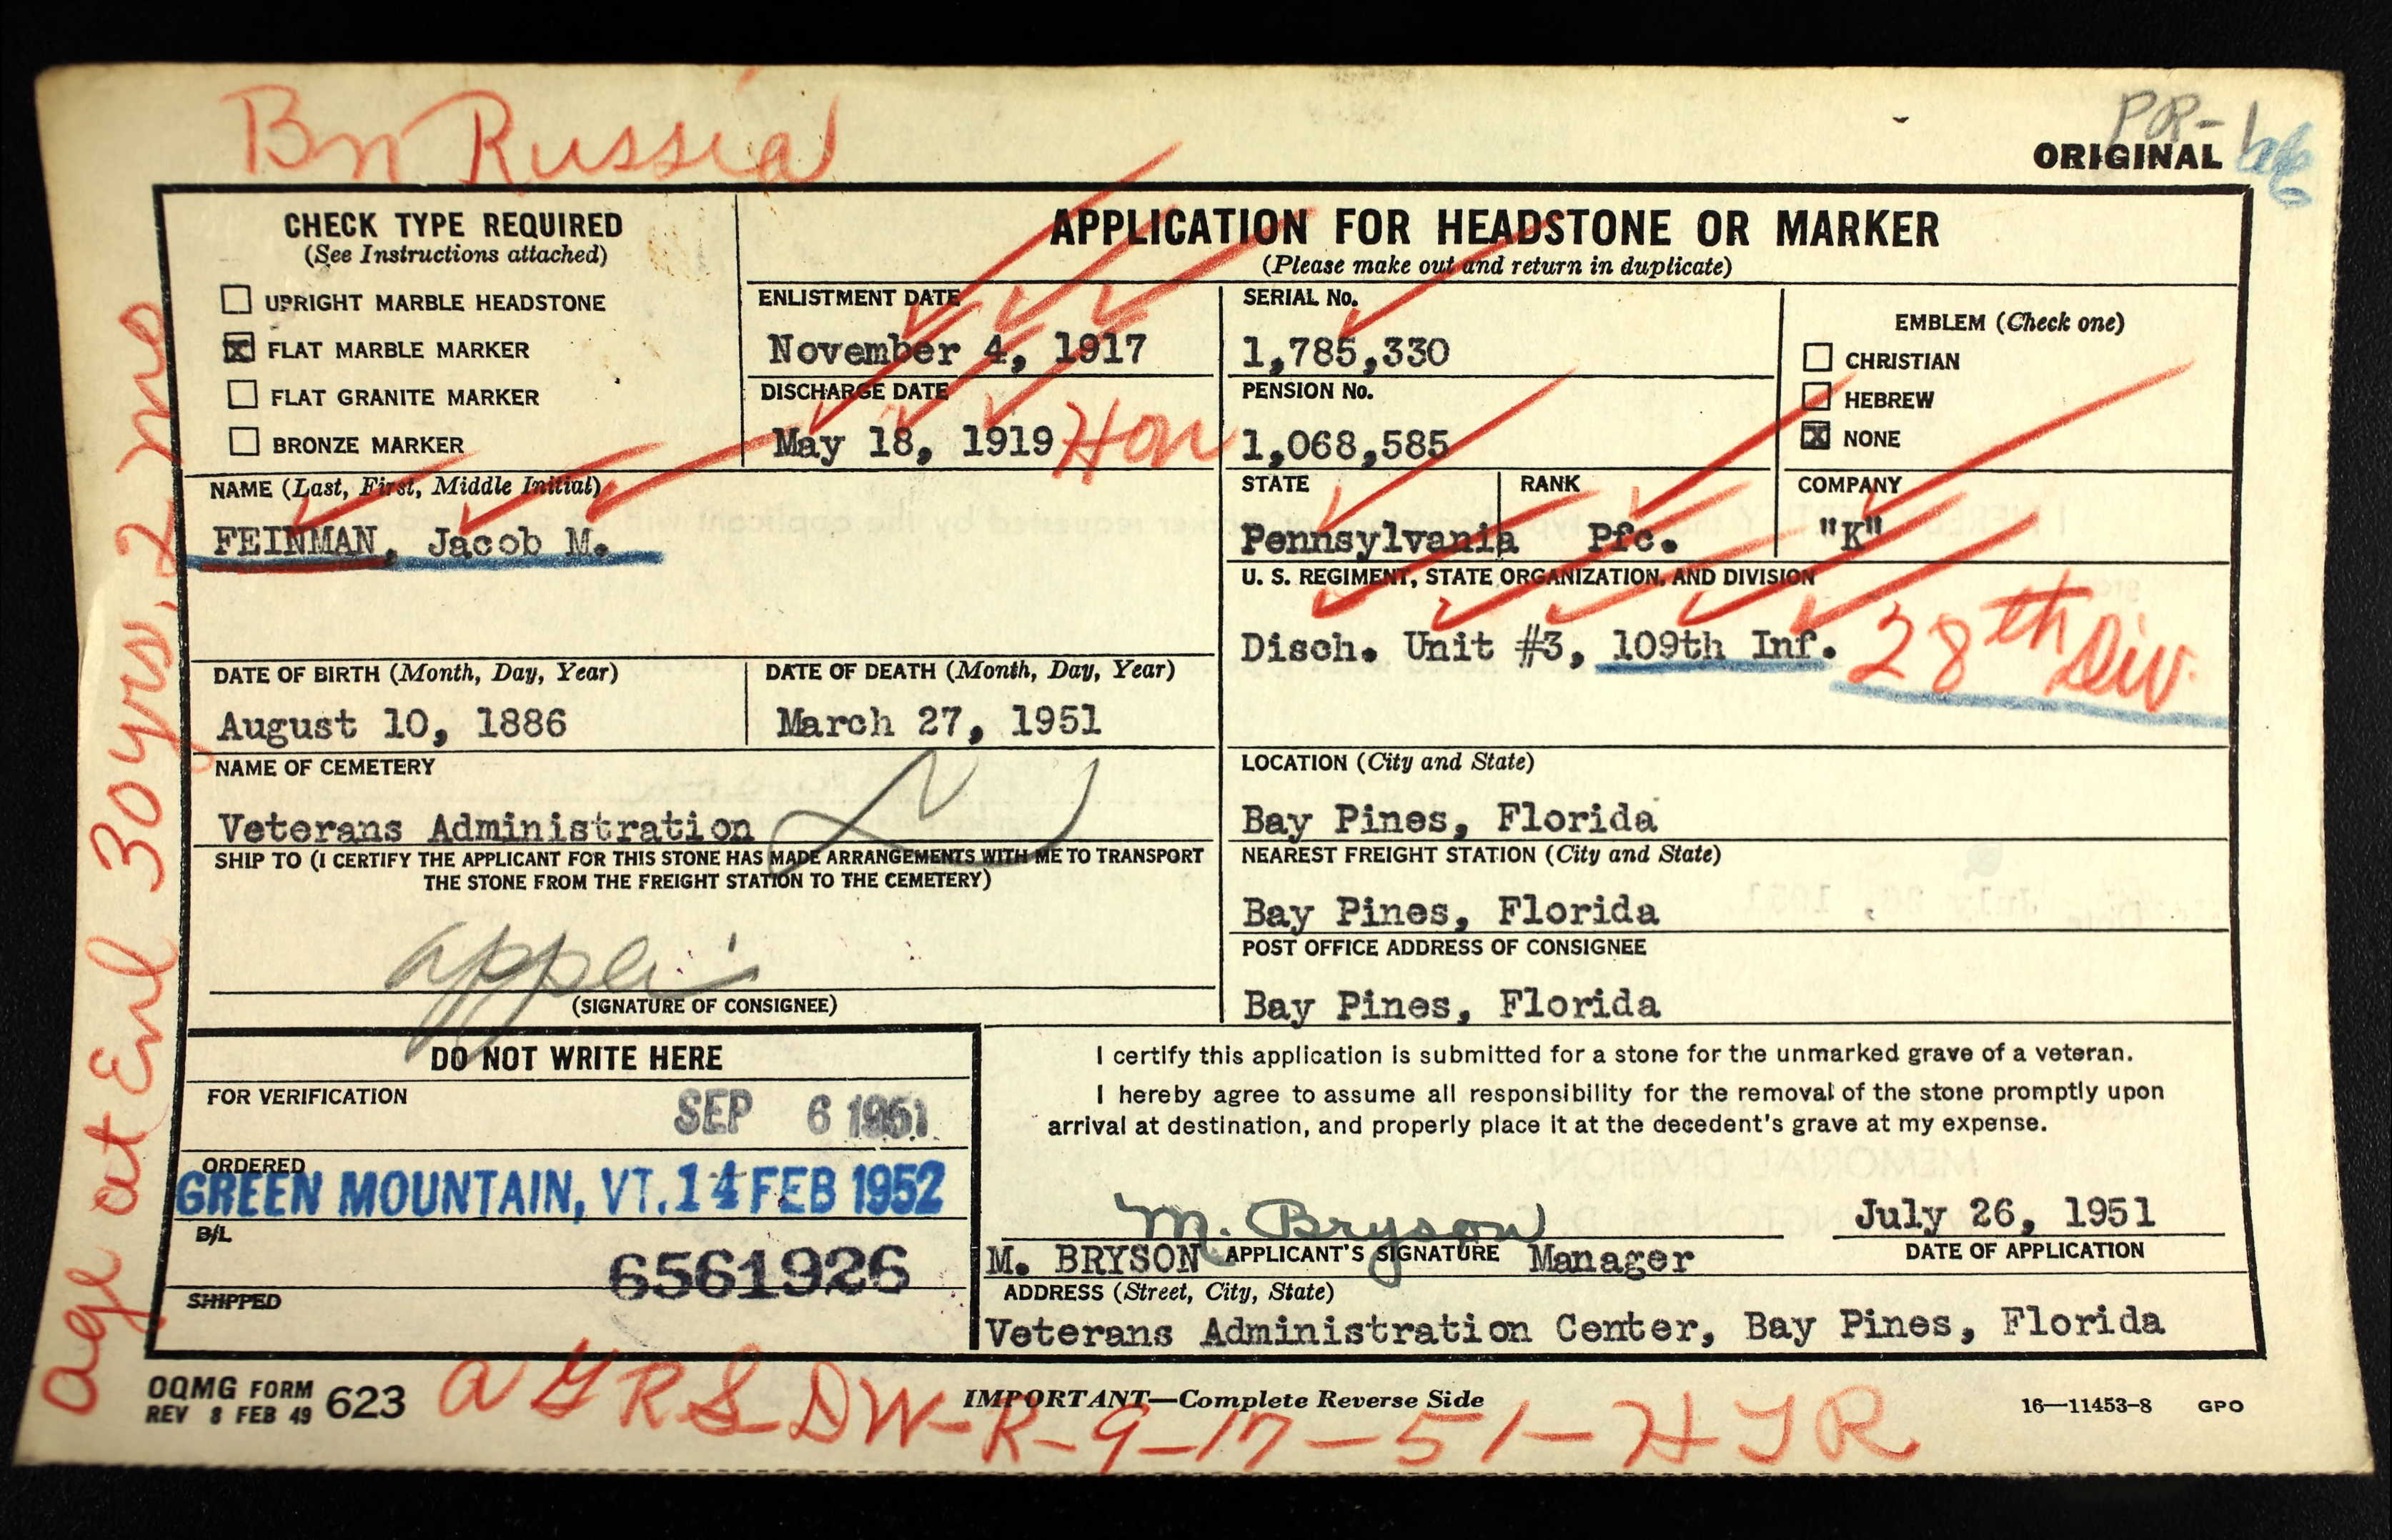 Bn Russia
PR-
ORIGINAL
CHECK TYPE REQUIRED
(See Instructions attached)
☐ UPRIGHT MARBLE HEADSTONE
☒ FLAT MARBLE MARKER
☐ FLAT GRANITE MARKER
☐ BRONZE MARKER
APPLICATION FOR HEADSTONE OR MARKER
(Please make out and return in duplicate)
ENLISTMENT DATE
November 4, 1917
DISCHARGE DATE
May 18, 1919 Hon
SERIAL No.
1,785,330
PENSION No.
1,068,585
EMBLEM (Check one)
☐ CHRISTIAN
☐ HEBREW
☒ NONE
NAME (Last, First, Middle Initial)
FEINMAN, Jacob M.
STATE
Pennsylvania
RANK
Pfc.
COMPANY
"K"
U. S. REGIMENT, STATE ORGANIZATION, AND DIVISION
Disch. Unit #3, 109th Inf. 28th Div.
DATE OF BIRTH (Month, Day, Year)
August 10, 1886
DATE OF DEATH (Month, Day, Year)
March 27, 1951
NAME OF CEMETERY
Veterans Administration
LOCATION (City and State)
Bay Pines, Florida
SHIP TO (I CERTIFY THE APPLICANT FOR THIS STONE HAS MADE ARRANGEMENTS WITH ME TO TRANSPORT
THE STONE FROM THE FREIGHT STATION TO THE CEMETERY)
(SIGNATURE OF CONSIGNEE)
NEAREST FREIGHT STATION (City and State)
Bay Pines, Florida
POST OFFICE ADDRESS OF CONSIGNEE
Bay Pines, Florida
DO NOT WRITE HERE
FOR VERIFICATION
SEP 6 1951
ORDERED
GREEN MOUNTAIN, VT. 14 FEB 1952
B/L
6561926
SHIPPED
I certify this application is submitted for a stone for the unmarked grave of a veteran.
I hereby agree to assume all responsibility for the removal of the stone promptly upon
arrival at destination, and properly place it at the decedent's grave at my expense.
M. Bryson
July 26, 1951
M. BRYSON APPLICANT'S SIGNATURE Manager
DATE OF APPLICATION
ADDRESS (Street, City, State)
Veterans Administration Center, Bay Pines, Florida
OQMG FORM 623
REV 8 FEB 49
IMPORTANT—Complete Reverse Side
16—11453-8 GPO
AGRS-DW-R-9-17-51-HJR
age at Enl 30yrs, 2 mo